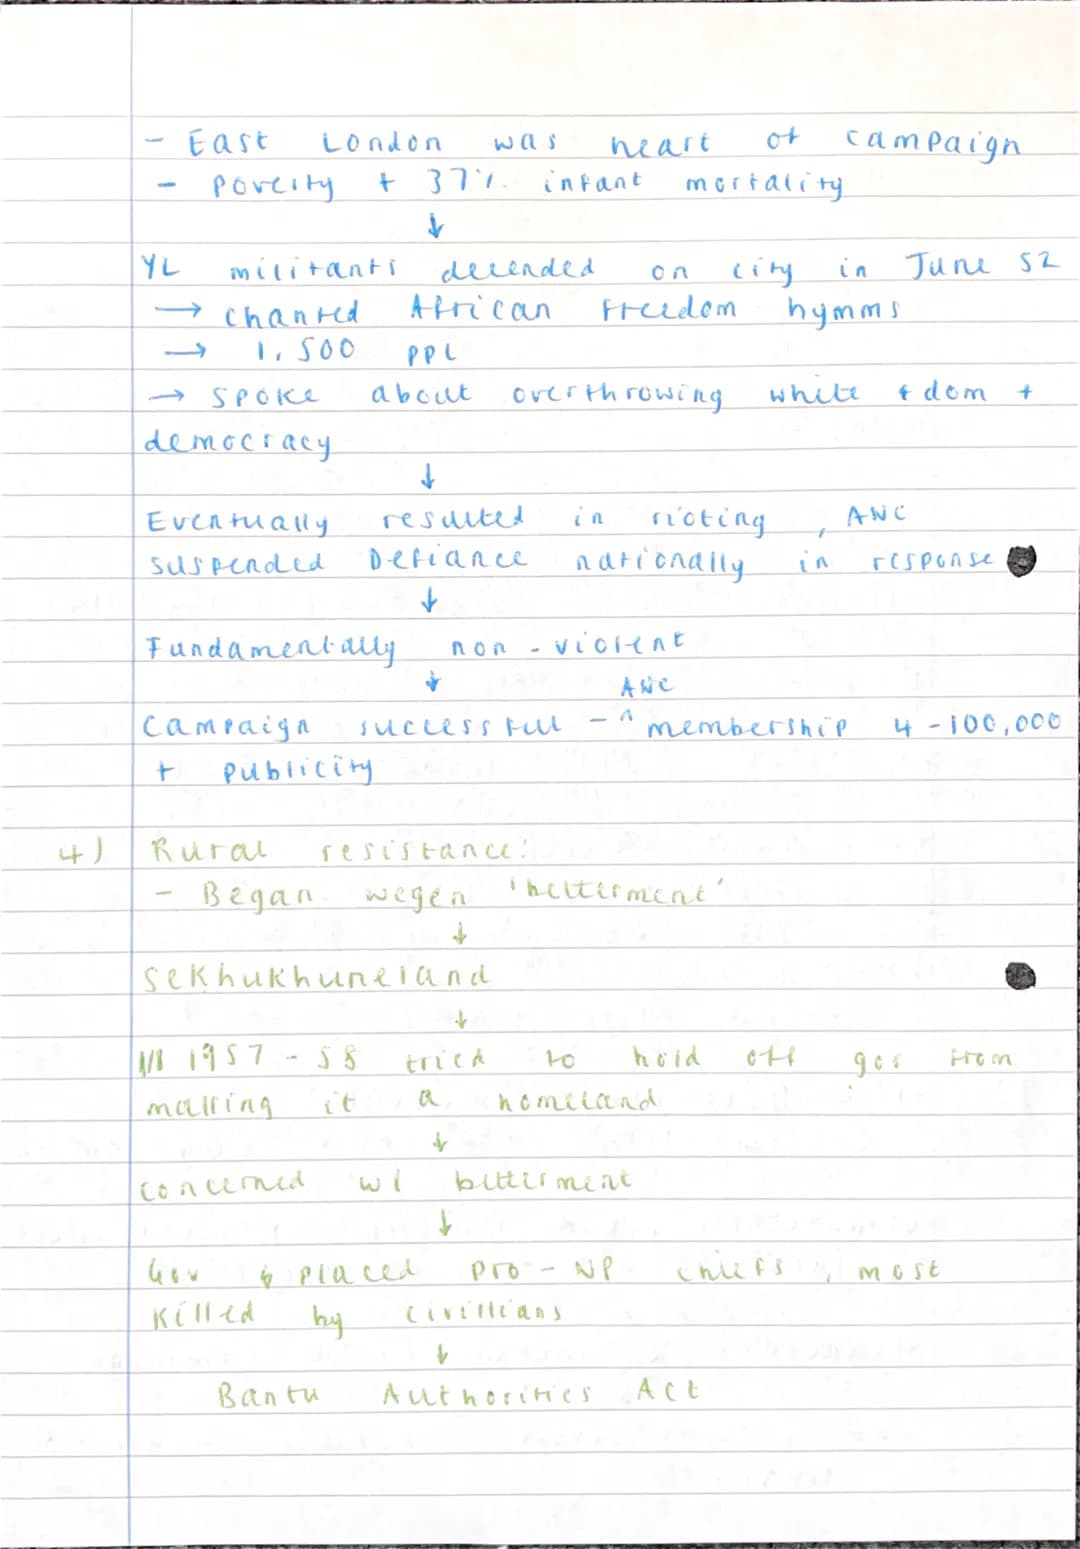 - East London was heart of campaign
- poverty + 37% infant mortality
↓
YL militants decended on city in June 52
→ chanted African freedom hymms
→ 1,500 ppl
→ spoke about overthrowing white dom +
democracy
↓
Eventually resulted in rioting, ANC
suspended Defiance nationally in response
↓
Fundamentally non-violent
↓
ANC
Campaign successful - ^ membership 4-100,000
+ publicity
4) Rural resistance:
- Began wegen 'betterment'
↓
Sekhukhuneland
↓
1957-58 tried to hold off gov from
making it a homeland
↓
concerned w/ betterment
↓
Gov placed pro-NP chiefs, most
killed by civillians
↓
Bantu Authorities Act